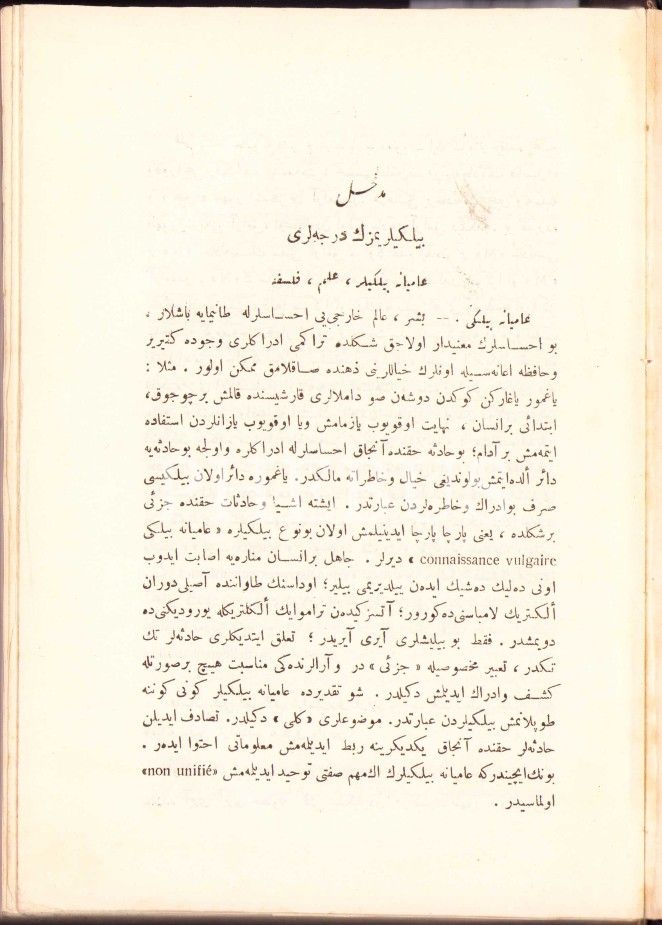 مدخل
بيلكيلريمزك درجه‌لرى
عاميانه بيلكيلر ، علم ، فلسفه
عاميانه بيلكى . -- بشر ، عالم خارجى‌يى احساسلرله طانيمايه باشلار ،
بو احساسلرك معنيدار اولاجق شكلده تراكمى ادراكلرى وجوده كتيرير
وحافظه اعانه‌سيله اونلرك خياللرينى ذهنده صاقلامق ممكن اولور . مثلا :
ياغمور ياغاركن كوكدن دوشه‌ن صو داملالرى قارشيسنده قالمش برچوجوق،
ابتدائى برانسان ، نهايت اوقويوب يازمامش ويا اوقويوب يازانلردن استفاده
ايتمه‌مش بر آدام؛ بوحادثه حقنده آنجاق احساسلرله ادراكلره واولجه بوحادثه‌يه
دائر ألده‌ايتمش‌بولونديغى خيال وخاطراته مالكدر. ياغموره دائراولان بيلكيسى
صرف بوادراك وخاطره‌لردن عبارتدر . ايشته اشيا وحادثات حقنده جزئى
برشكلده ، يعنى پارچا پارچا ايدينيلمش اولان بونوع بيلكيلره « عاميانه بيلكى
connaissance vulgaire » ديرلر . جاهل برانسان مناره‌يه اصابت ايدوب
اونى ده‌ليك ده‌شيك ايدن ييلديريمى بيلير؛ اوداسنك طاواننده آصيلى‌دوران
ألكتريك لامباسنى‌ده‌كورور؛ آتسزكيدن تراموايك ألكتريكله يوروديكنى‌ده
دويمشدر. فقط بو بيليشلرى آيرى آيريدر ؛ تعلق ايتديكلرى حادثه‌لر تك
تكدر ، تعبير مخصوصيله « جزئى » در وآرالرنده‌كى مناسبت هيچ برصورتله
كشف وادراك ايديلمش دكيلدر . شو تقديرده عاميانه بيلكيلر كونى كوننه
طوپلانمش بيلكيلردن عبارتدر. موضوعلرى « كلى » دكيلدر. تصادف ايديلن
حادثه‌لر حقنده آنجاق يكديكرينه ربط ايديلمه‌مش معلوماتى احتوا ايدەر .
بونك‌ايچيندركه عاميانه بيلكيلرك اك‌مهم صفتى توحيد ايديلمه‌مش «non unifié»
اولماسيدر .